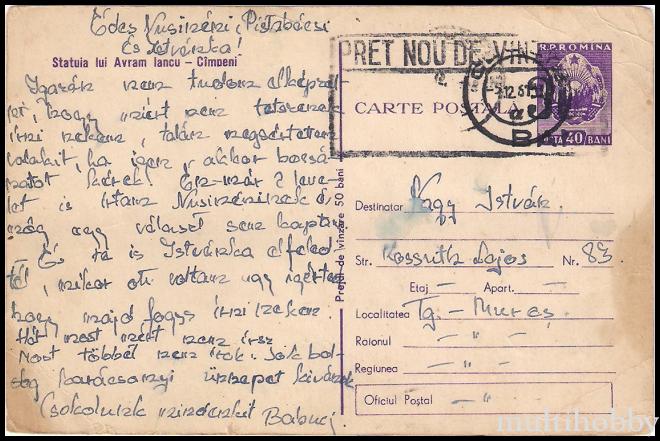 Édes Nusinéni, Pistabácsi
És Istvánka!
Statuia lui Avram Iancu – Cîmpeni
Igazán nem tudom elképzel-
ni, hogy miért nem tetszenek
írni nekem, talán megsértettem
valakit, ha igen, akkor bocsá-
natot kérek! Én már 2 leve-
let is írtam Nusinéninek és
még egy választ sem kaptam
És te is Istvánka elfeled-
tél, mikor ott voltam úgy igérted
hogy majd fogsz írni nekem.
Hát most miért nem írsz
Most többet nem írok. Sok bol-
dog karácsonyi ünnepet kívánok
Csókolunk mindenkit Babuci
Prețul de vînzare 50 bani
PRET NOU DE VINZ
R.P.ROMINA
CARTE POȘTALĂ
40 BANI
Destinatar Nagy István
Str. Kossuth Lajos Nr. 83.
Etaj — Apart. —
Localitatea Tg. - Mureș
Raionul — " —
Regiunea — " —
Oficiul Poștal — " —
multihobby